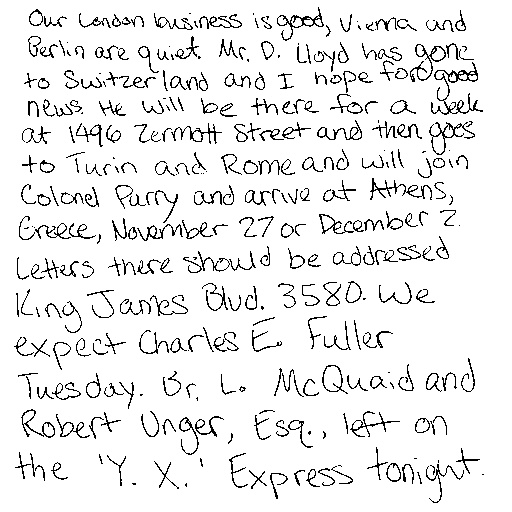 Our London business is good, Vienna and
Berlin are quiet. Mr. D. Lloyd has gone
to Switzerland and I hope for good
news. He will be there for a week
at 1496 Zermott Street and then goes
to Turin and Rome and will join
Colonel Parry and arrive at Athens,
Greece, November 27 or December 2.
Letters there should be addressed
King James Blvd. 3580. We
expect Charles E. Fuller
Tuesday. Dr. L. McQuaid and
Robert Unger, Esq., left on
the 'Y. X.' Express tonight.